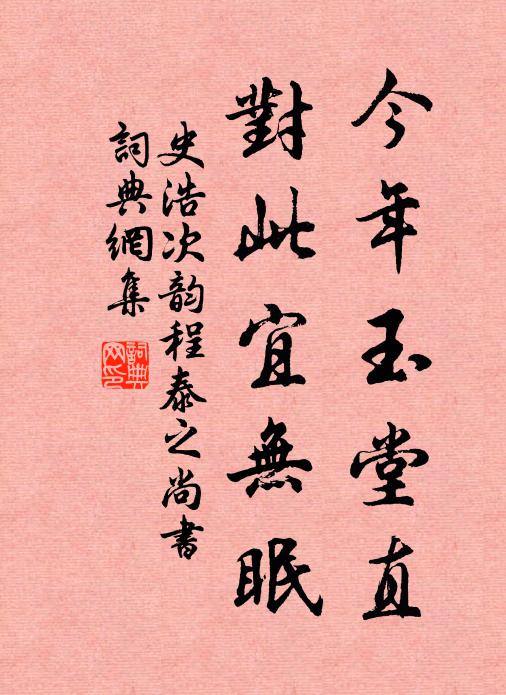 今年玉堂直
對此宜無眠
史浩次韵程泰之尚書
詞典網集
詞典網印